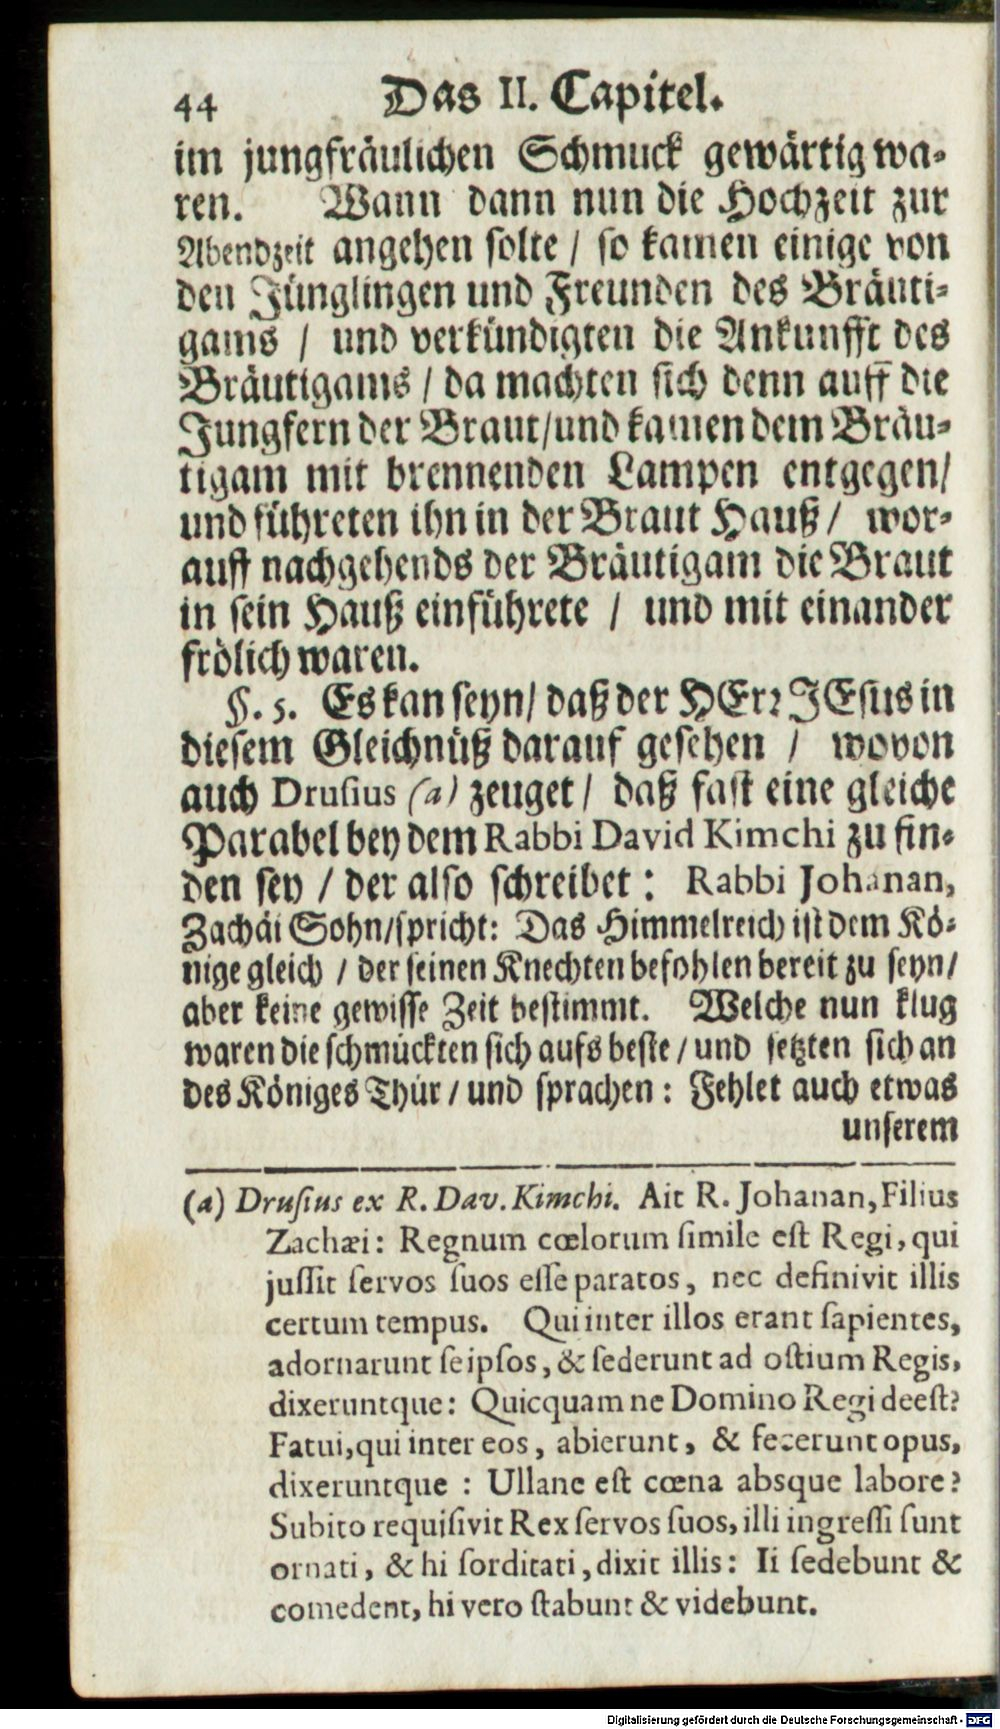 44 Das II. Capitel.
im jungfräulichen Schmuck gewärtig wa-
ren. Wann dann nun die Hochzeit zur
Abendzeit angehen solte / so kamen einige von
den Jünglingen und Freunden des Bräuti-
gams / und verkündigten die Ankunfft des
Bräutigams / da machten sich denn auff die
Jungfern der Braut/und kamen dem Bräu-
tigam mit brennenden Lampen entgegen/
und führeten ihn in der Braut Hauß / wor-
auff nachgehends der Bräutigam die Braut
in sein Hauß einführete / und mit einander
frölich waren.
§. 5. Es kan seyn/ daß der HErr JEsus in
diesem Gleichnüß darauf gesehen / wovon
auch Drusius (a) zeuget / daß fast eine gleiche
Parabel bey dem Rabbi David Kimchi zu fin-
den sey / der also schreibet: Rabbi Johanan,
Zachäi Sohn/spricht: Das Himmelreich ist dem Kö-
nige gleich / der seinen Knechten befohlen bereit zu seyn/
aber keine gewisse Zeit bestimmt. Welche nun klug
waren die schmückten sich aufs beste / und setzten sich an
des Königes Thür / und sprachen: Fehlet auch etwas
unserem
(a) Drusius ex R. Dav. Kimchi. Ait R. Johanan, Filius
Zachæi: Regnum cœlorum simile est Regi, qui
jussit servos suos esse paratos, nec definivit illis
certum tempus. Qui inter illos erant sapientes,
adornarunt seipsos, & sederunt ad ostium Regis,
dixeruntque: Quicquamne Domino Regi deest?
Fatui, qui inter eos, abierunt, & fecerunt opus,
dixeruntque : Ullane est cœna absque labore?
Subito requisivit Rex servos suos, illi ingressi sunt
ornati, & hi sorditati, dixit illis: Ii sedebunt &
comedent, hi vero stabunt & videbunt.
Digitalisierung gefördert durch die Deutsche Forschungsgemeinschaft - DFG